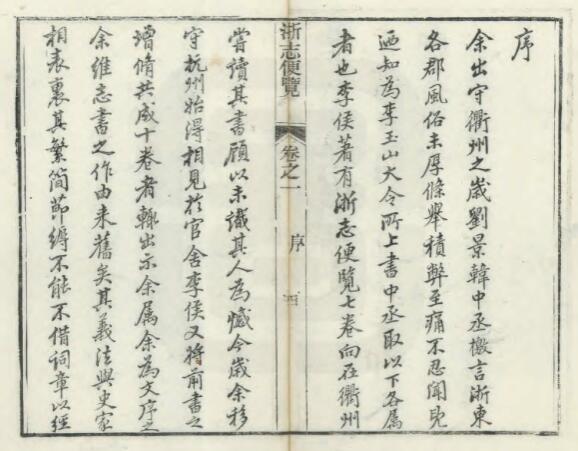 序
余出守衢州之歲劉景韓中丞檄言浙東
各郡風俗未厚條舉積弊至痛不忍聞見
廼知為李玉山大令所上書中丞取以下各屬
者也李侯著有浙志便覽七卷向在衢州
浙志便覽 卷之一 序 四
嘗讀其書顧以未識其人為憾今歲余移
守杭州始得相見於官舍李侯又將前書之
增脩共成十卷者輙出示余属余為文序之
余維志書之作由来舊矣其義法與史家
相表裏其繁簡節縟不能不借詞章以經